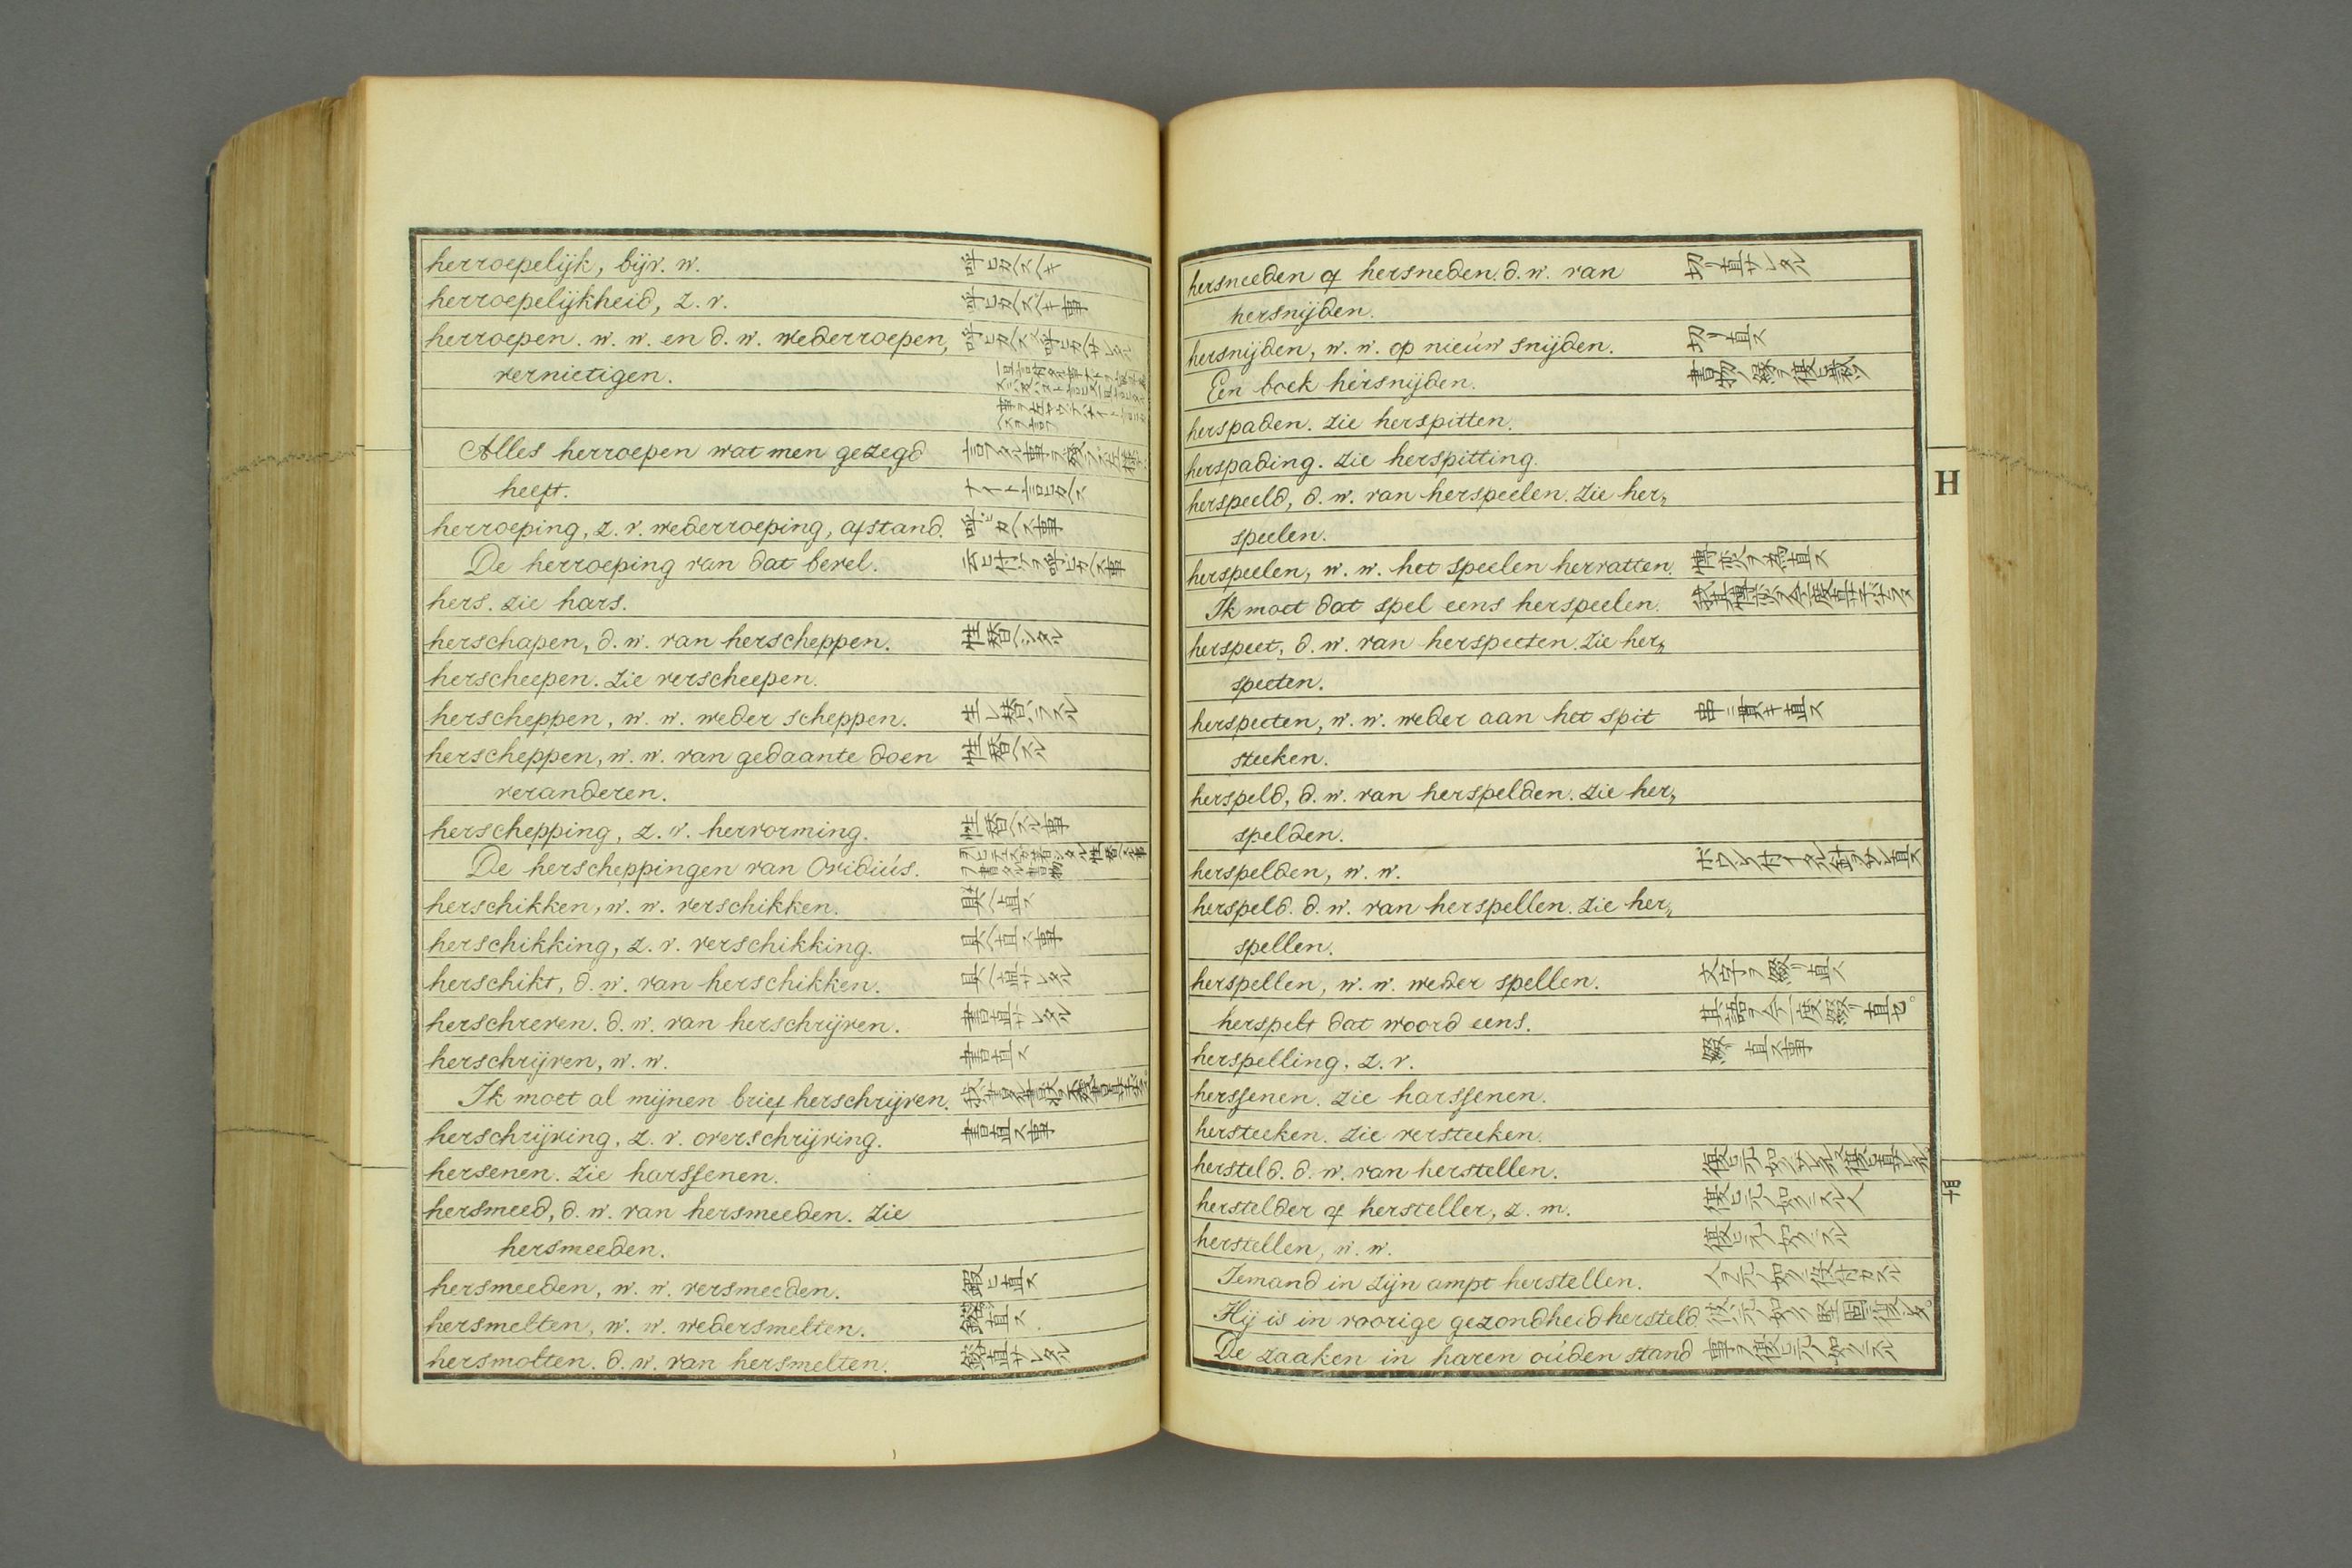 herroepelijk, bijv. w. 呼ヒカヘスヘキ
herroepelijkheid, z. v. 呼ヒカヘスヘキ事
herroepen. w. w. en d. w. wederroepen, 呼ヒカヘス
vernietigen.
Alles herroepen wat men gezegd
heeft. ナイト言ヒカヘス
herroeping, z. v. wederroeping, afstand. 呼ヒカヘス事
De herroeping van dat bevel. 云ヒ付ケヲ呼ヒカヘス事
hers. zie hars.
herschapen, d. w. van herscheppen. 性替ヘシタル
herscheepen. zie verscheepen.
herscheppen, w. w. weder scheppen. 生レ替ハラスル
herscheppen, w. w. van gedaante doen 性替ヘスル
veranderen.
herschepping, z. v. hervorming. 性替ヘスル事
De herscheppingen van Ovidiús.
herschikken, w. w. verschikken. 具ヘ直ス
herschikking, z. v. verschikking. 具ヘ直ス事
herschikt, d. w. van herschikken. 具ヘ直サレタル
herschreven. d. w. van herschrijven. 書直サレタル
herschrijven, w. w. 書直ス
Ik moet al mijnen brief herschrijven.
herschrijving, z. v. overschrijving. 書直ス事
hersenen. zie harssenen.
hersmeed, d. w. van hersmeeden. zie
hersmeeden.
hersmeeden, w. w. versmeeden. 鍜ヒ直ス
hersmelten, w. w. wedersmelten. 鎔直ス
hersmolten. d. w. van hersmelten. 鎔直サレタル
hersneeden of hersneden. d. w. van 切リ直サレタル
hersnijden.
hersnijden, w. w. op nieúw snijden. 切リ直ス
Een boek hersnijden. 書物ノ縁ヲ復ヒ裁ツ
herspaden. zie herspitten.
herspading. zie herspitting.
herspeeld, d. w. van herspeelen. zie her„
speelen.
herspeelen, w. w. het speelen hervatten.
Ik moet dat spel eens herspeelen.
herspeet, d. w. van herspeeten. zie her„
speeten.
herspeeten, w. w. weder aan het spit 串ニ貫キ直ス
steeken.
herspeld, d. w. van herspelden. zie her„
spelden.
herspelden, w. w.
herspeld. d. w. van herspellen. zie her„
spellen.
herspellen, w. w. weder spellen. 文字ヲ綴リ直ス
herspelt dat woord eens. 其語ヲ今一度綴リ直セ。
herspelling. z. v. 綴リ直ス事
herssenen. zie harssenen.
hersteeken. zie versteeken.
hersteld. d. w. van herstellen.
herstelder of hersteller, z. m. 復ヒ元ノ如クニスル人
herstellen, w. w. 復ヒ元ノ如クニスル
Iemand in zijn ampt herstellen.
Hij is in voorige gezondheid hersteld
De zaaken in haren oúden stand 事ヲ復ヒ元ノ如クニスル
H